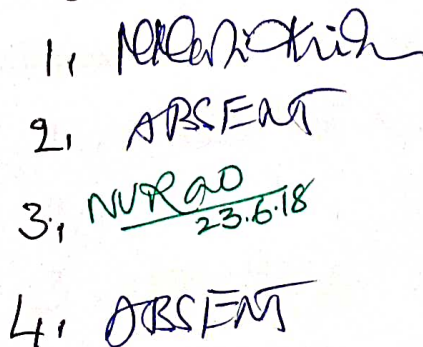 1,
2, ABSENT
3, NVRao
23.6.18
4, ABSENT